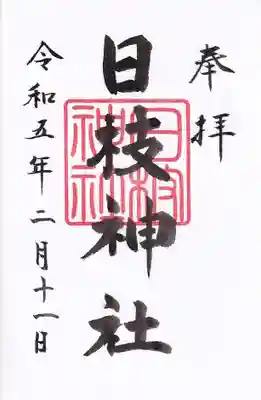 奉拝
日枝神社
令和五年二月十一日
日枝神社